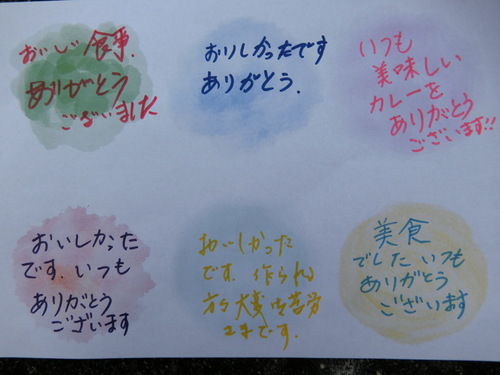 おいしい食事.
ありがとう
ございました
おいしかったです
ありがとう.
いつも
美味しい
カレーを
ありがとう
ございます!!
おいしかった
です. いつも
ありがとう
ございます
おいしかった
です. 作られる
方々大変ご苦労
さまです.
美食
でした いつも
ありがとう
ございます